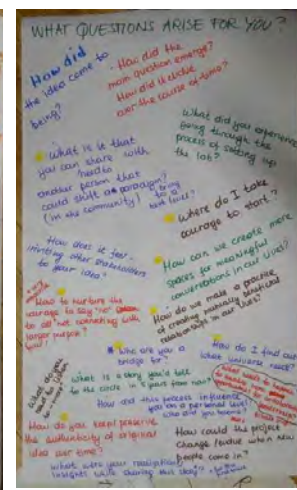 WHAT QUESTIONS ARISE FOR YOU?
How did
the idea come to
being?
- How did the
main question emerge?
How did it evolve
over the course of time?
What did you experience
going through the
process of setting up
the lab?
What is it that
you can share with
another person that
could shift a paradigm?
(in the community)
to a
next level?
Where do I take
courage to start?
How does it feel
inviting other stakeholders
to your idea?
How can we create more
spaces for meaningful
conversations in our lives?
How to nurture the
courage to say "no"
to all not connecting with
larger purpose?
How do we make a practice
of creating mutually beneficial
relationships in our lives?
Who are you a
bridge for?
How do I find out
what universe needs?
What is a story you'd tell
to the circle in 5 years from now?
How did this process influence
you on a personal level?
How do you keep/preserve
the authenticity of original
idea over time?
How could the project
change/evolve when new
people come in?
What were your realizations/
insights while sharing this story?